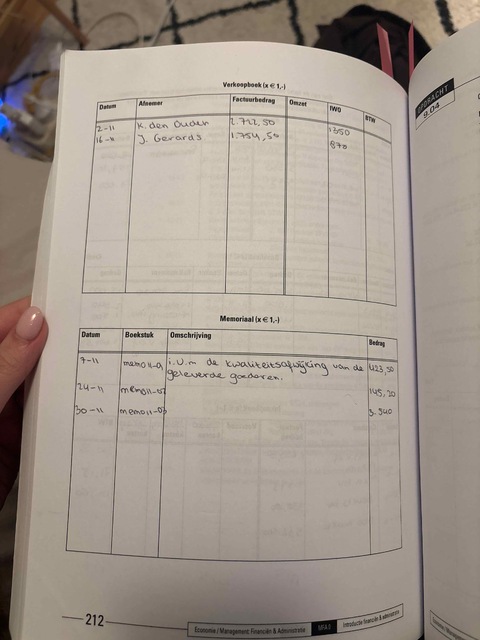 Verkoopboek (x € 1,-)
Datum Afnemer Factuurbedrag Omzet IWO BTW
2-11 K. den Ouden 2.722,50 1350
16-11 J. Gerards 1.754,50 870
Memoriaal (x € 1,-)
Datum Boekstuk Omschrijving Bedrag
7-11 memo11-01 i.v.m de kwaliteitsafwijking van de 423,50
geleverde goederen.
24-11 memo11-02 145,20
30-11 memo11-03 3.540
212 Economie / Management Financiën & Administratie MFA 8 Introductie financiën & administratie
OPDRACHT
9.04